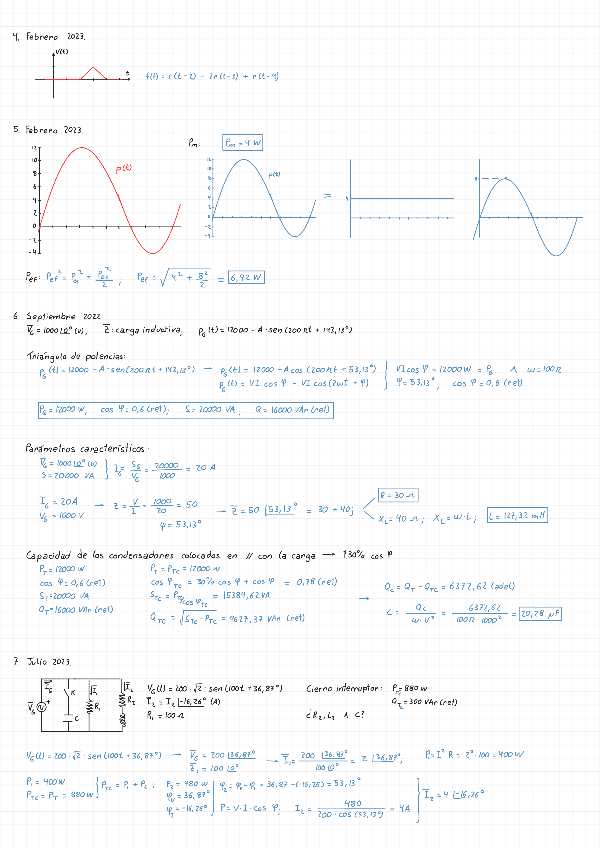 4. Febrero 2023.
V(t)
t
f(t) = r(t-2) - 2r(t-3) + r(t-4)
5. Febrero 2023.
Pm: Pm = 4 W
p(t)
p(t)
=
12
10
8
6
4
2
0
-2
-4
Pef: Pef² = Po² + Pac²/2, Pef = √(4² + 8²/2) = 6,92 W
6 Septiembre 2022
V̄G = 1000 |0° (V), Z̄: carga inductiva, PG(t) = 12000 - A·sen(200πt + 143,13°)
Triángulo de potencias:
PG(t) = 12000 - A·sen(200πt + 143,13°) → PG(t) = 12000 - A cos(200πt + 53,13°)
PG(t) = VI cos φ - VI cos(2ωt + φ)
VI cos φ = 12000W = PG ∧ ω = 100π
φ = 53,13°, cos φ = 0,6 (ret)
PG = 12000 W; cos φ = 0,6 (ret); S = 20000 VA; Q = 16000 VAr (ret)
Parámetros característicos:
V̄G = 1000 |0° (V)
S = 20000 VA
IG = SG/VG = 20000/1000 = 20 A
IG = 20A
VG = 1000 V
→ Z = V/I = 1000/20 = 50
φ = 53,13°
→ Z̄ = 50 |53,13° = 30 + 40j
R = 30 Ω
XL = 40 Ω; XL = ω·L; L = 127,32 mH
Capacidad de los condensadores colocados en // con la carga → ↑30% cos φ
PT = 12000 W
cos φ = 0,6 (ret)
ST = 20000 VA
QT = 16000 VAr (ret)
PT = PTC = 12000 W
cos φTC = 30% cos φ + cos φ = 0,78 (ret)
STC = PTC/cos φTC = 15384,62 VA
QTC = √(STC - PTC) = 9627,37 VAr (ret)
→
QC = QT - QTC = 6372,62 (adel)
C = QC/ω·V² = 6372,62/100π·1000² = 20,28 µF
7 Julio 2023.
V̄G
ĪG
K
C
Ī1
R1
Ī2
R2
VG(t) = 200·√2·sen(100t + 36,87°)
Ī2 = I2 |-16,26° (A)
R1 = 100 Ω
Cierro interruptor: PG = 880 W
QG = 300 VAr (ret)
¿R2, L2 ∧ C?
VG(t) = 200·√2·sen(100t + 36,87°) → V̄G = 200 |36,87°
Z̄1 = 100 |0°
→ Ī1 = 200 |36,87°/100 |0° = 2 |36,87°, P = I²·R = 2²·100 = 400W
P1 = 400W
PTC = PT = 880W
PTC = P1 + P2,
P2 = 480 W
φV = 36,87°
φI = -16,26°
φ2 = φV - φI = 36,87 - (-16,26) = 53,13°
P = V·I·cos φ, I2 = 480/200·cos(53,13°) = 4A
Ī2 = 4 |-16,26°